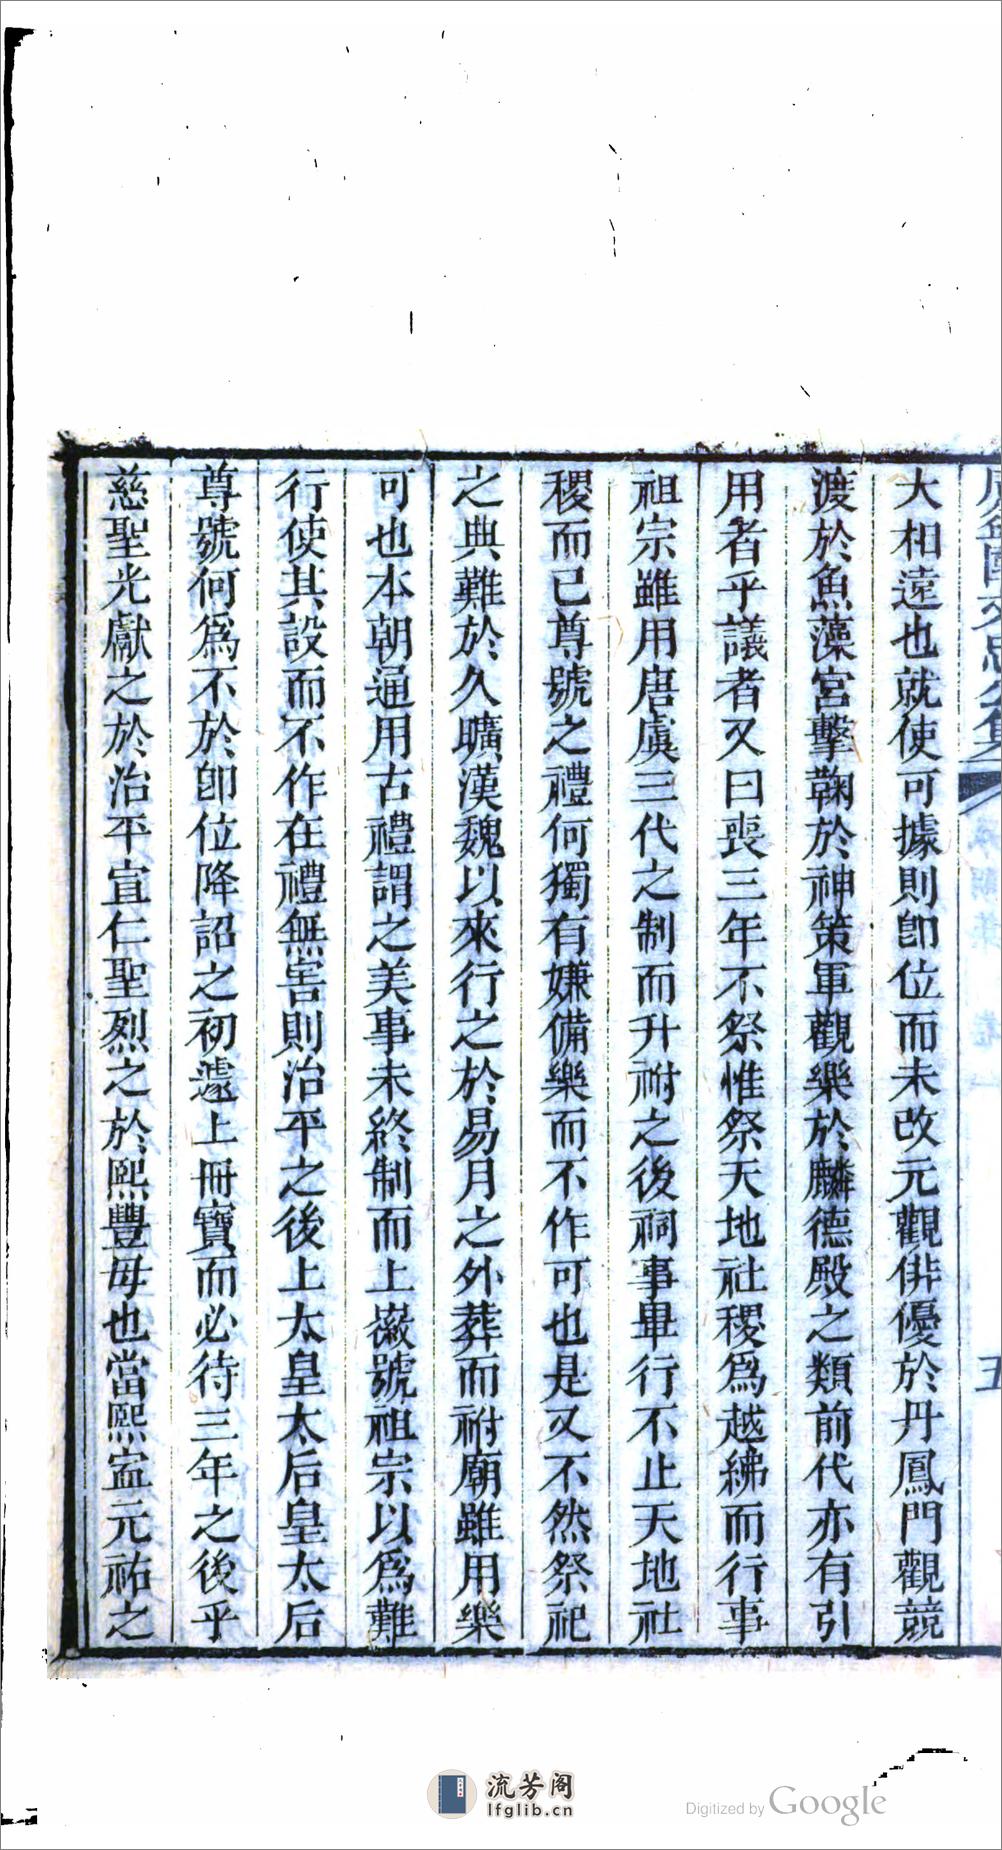 大相遠也就使可據則卽位而未改元觀俳優於丹鳳門觀競
渡於魚藻宮擊鞠於神策軍觀樂於麟德殿之類前代亦有引
用者乎議者又曰喪三年不祭惟祭天地社稷爲越紼而行事
祖宗雖用唐虞三代之制而升祔之後祠事畢行不止天地社
稷而已尊號之禮何獨有嫌備樂而不作可也是又不然祭祀
之典難於久曠漢魏以來行之於易月之外葬而祔廟雖用樂
可也本朝通用古禮謂之美事未終制而上徽號祖宗以爲難
行使其設而不作在禮無害則治平之後上太皇太后皇太后
尊號何爲不於卽位降詔之初遽上冊寶而必待三年之後乎
慈聖光獻之於治平宣仁聖烈之於熙豐毋也當熙寍元祐之
流芳阁
lfglib.cn
Digitized by Google